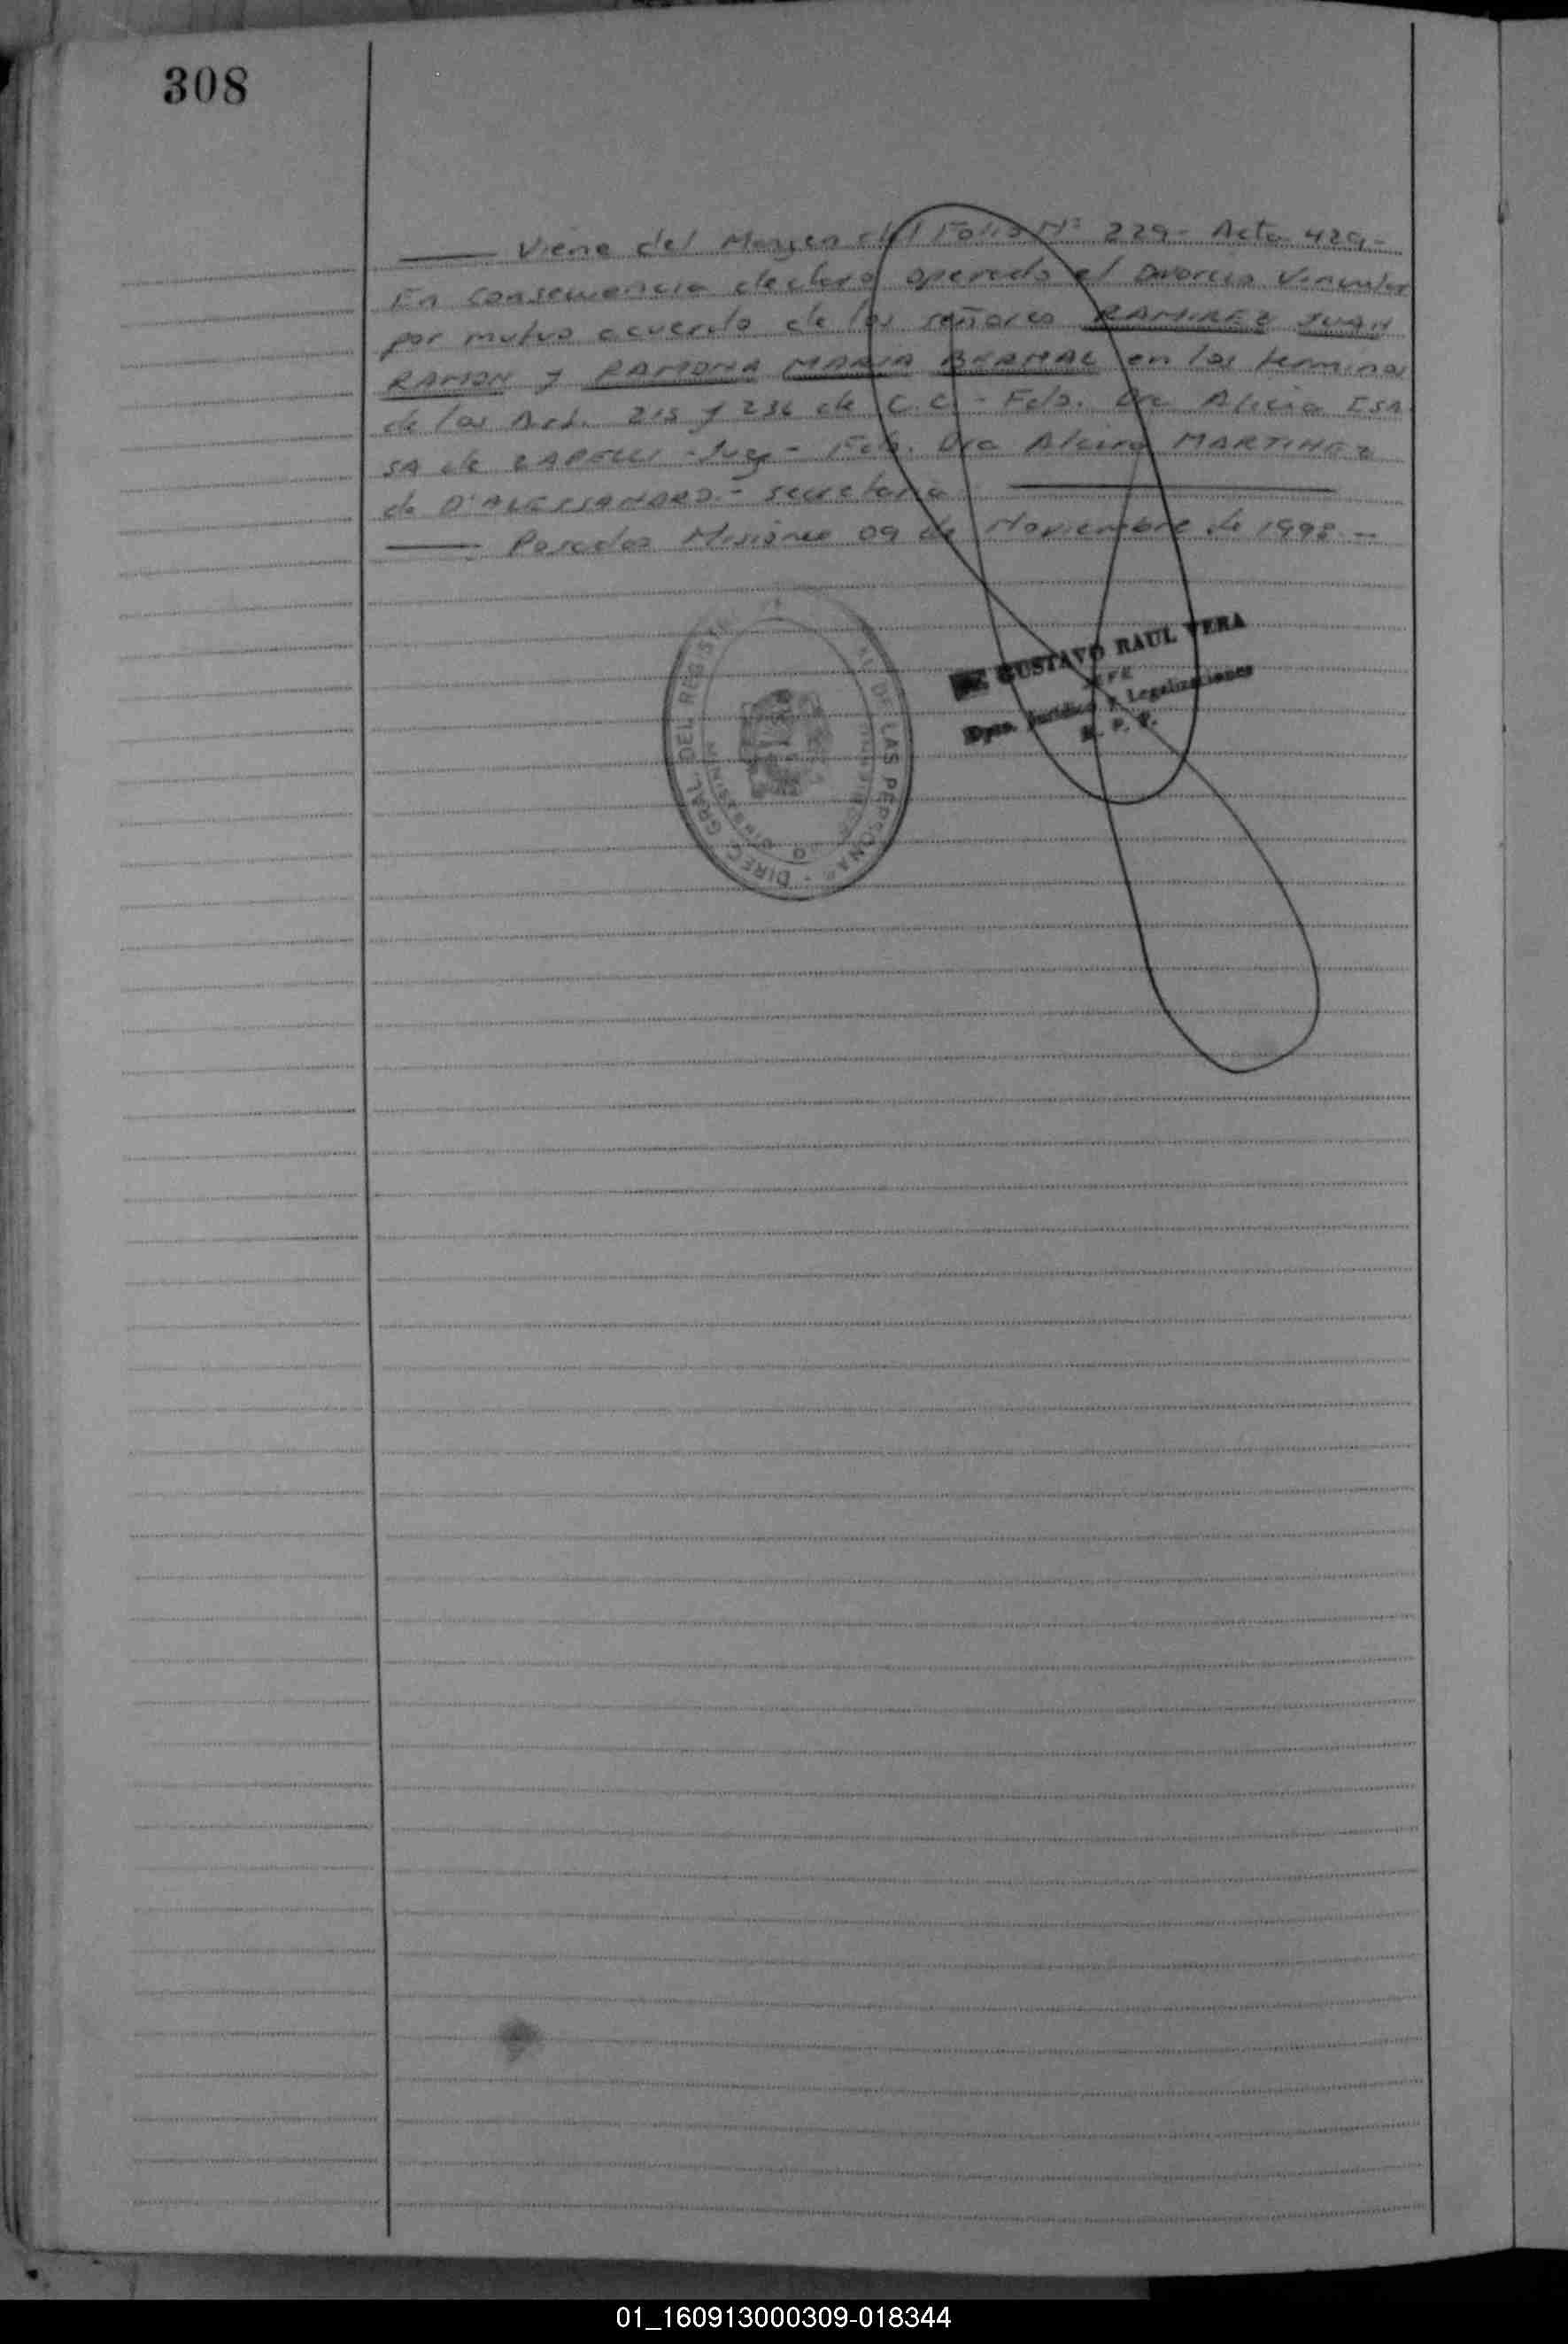 308
Viene del Margen del Folio Nº 229- Acta 429-
En consecuencia declaro operado el Divorcio Vincular
por mutuo acuerdo de los señores RAMIREZ JUAN
RAMON y RAMONA MARIA BERNAL en los terminos
de los Art. 215 y 236 de C.C.- Fdo. Dra Alicia ESA
SA de ZAPELLI -Juez- Fdo. Dra Alcira MARTINEZ
de D'ALESSANDRO.- secretaria
Posadas Misiones 09 de Noviembre de 1998.-
GUSTAVO RAUL VERA
JEFE
Dpto. Jurídico y Legalizaciones
R. P. P.
DIREC. GRAL. DEL REGISTR DE LAS PERSONAS
01_160913000309-018344